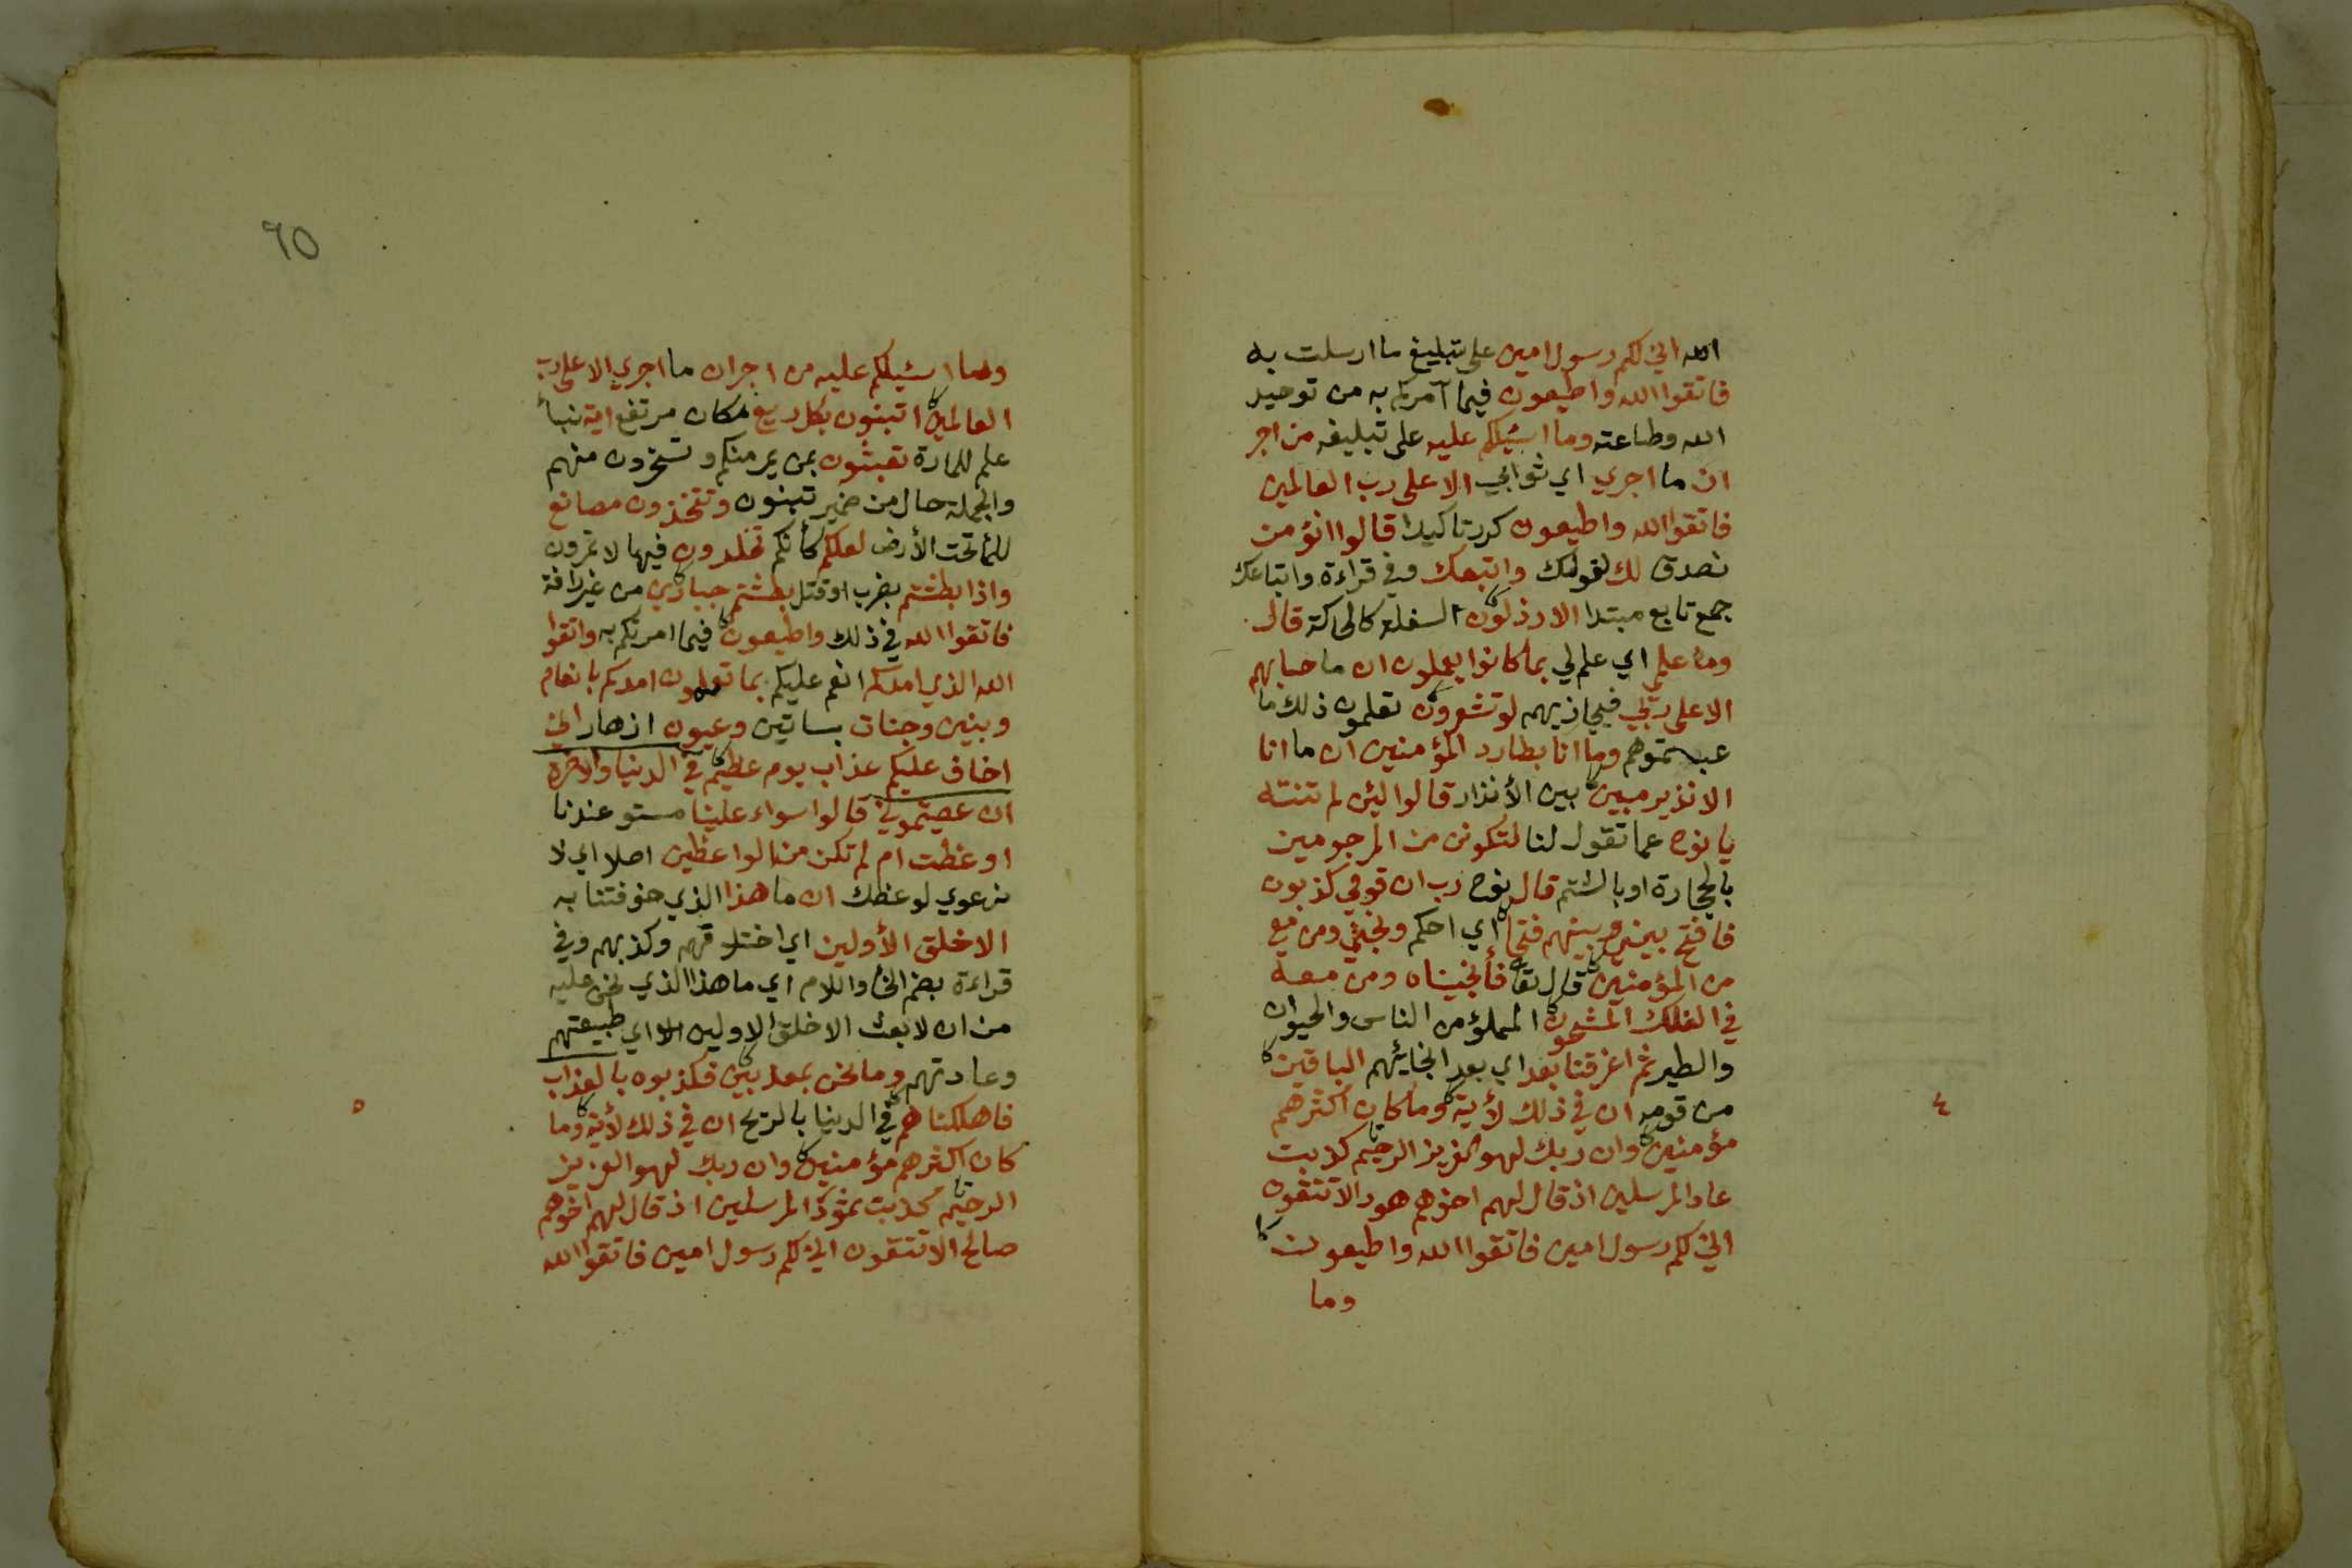 الله اني لكم رسول امين على تبليغ ما ارسلت به
فاتقوا الله واطيعون فيما آمركم به من توحيد
الله وطاعته وما اسئيلكم عليه على تبليغه من اجر
ان ما اجري اي ثوابي الا على رب العالمين
فاتقوا الله واطيعون كرر تاكيدا قالوا انؤمن
نصدق لك لقولك واتبعك وفي قراءة واتباعك
جمع تابع مبتدا الارذلون السفلة كالحاكة قال
وما علمي اي علم لي بما كانوا يعملون ان ما حسابهم
الا على ربي فيجازيهم لو تشعرون تعلمون ذلك ما
عبتموهم وما انا بطارد المؤمنين ان ما انا
الا نذير مبين بين الأنذار قالوا ليئن لم تنته
يا نوح عما تقول لنا لتكونن من المرجومين
بالحجارة او بالشتم قال نوح رب ان قومي كذبون
فافتح بيني وبينهم فتحا اي احكم ونجني ومن معي
من المؤمنين قال تعا فأنجيناه ومن معه
في الفلك المشحون المملؤ من الناس والحيوان
والطير ثم اغرقنا بعد اي بعد انجائيهم الباقين
من قومه ان في ذلك لأية وما كان اكثرهم
٤
مؤمنين وان ربك لهو العزيز الرحيم كذبت
عاد المرسلين اذ قال لهم اخوهم هود الا تتقون
اني لكم رسول امين فاتقوا الله واطيعون
وما
٦٥
وما اسئيلكم عليه من اجر ان ما اجري الا على رب
العالمين اتبنون بكل ريع مكان مرتفع اية نبأ
علم للمارة تعبثون بمن يمر منكم وتسخرون منهم
والجملة حال من ضمير تبنون وتتخذون مصانع
للما تحت الأرض لعلكم كأنكم تخلدون فيها لا تمرون
واذا بطشتم بضرب او قتل بطشتم جبارين من غير رافة
فاتقوا الله في ذلك واطيعون فيما امرتكم به واتقوا
الله الذي امدكم انعم عليكم بما تعلمون امدكم بانعام
وبنين وجنات بساتين وعيون انهار اني
اخاف عليكم عذاب يوم عظيم في الدنيا والاخرة
ان عصيتموني قالوا سواء علينا مستو عندنا
اوعظت ام لم تكن من الواعظين اصلا اي لا
نرعوي لوعظك ان ما هذا الذي خوفتنا به
الا خلق الأولين اي اختلاقهم وكذبهم وفي
قراءة بضم الخا واللام اي ما هذا الذي نحن عليه
من ان لا بعث الا خلق الاولين اي طبيعتهم
وعادتهم وما نحن بمعذبين فكذبوه بالعذاب
فاهلكناهم في الدنيا بالريح ان في ذلك لأية وما
٥
كان اكثرهم مؤمنين وان ربك لهو العزيز
الرحيم كذبت ثمود المرسلين اذ قال لهم اخوهم
صالح الا تتقون اني لكم رسول امين فاتقوا الله